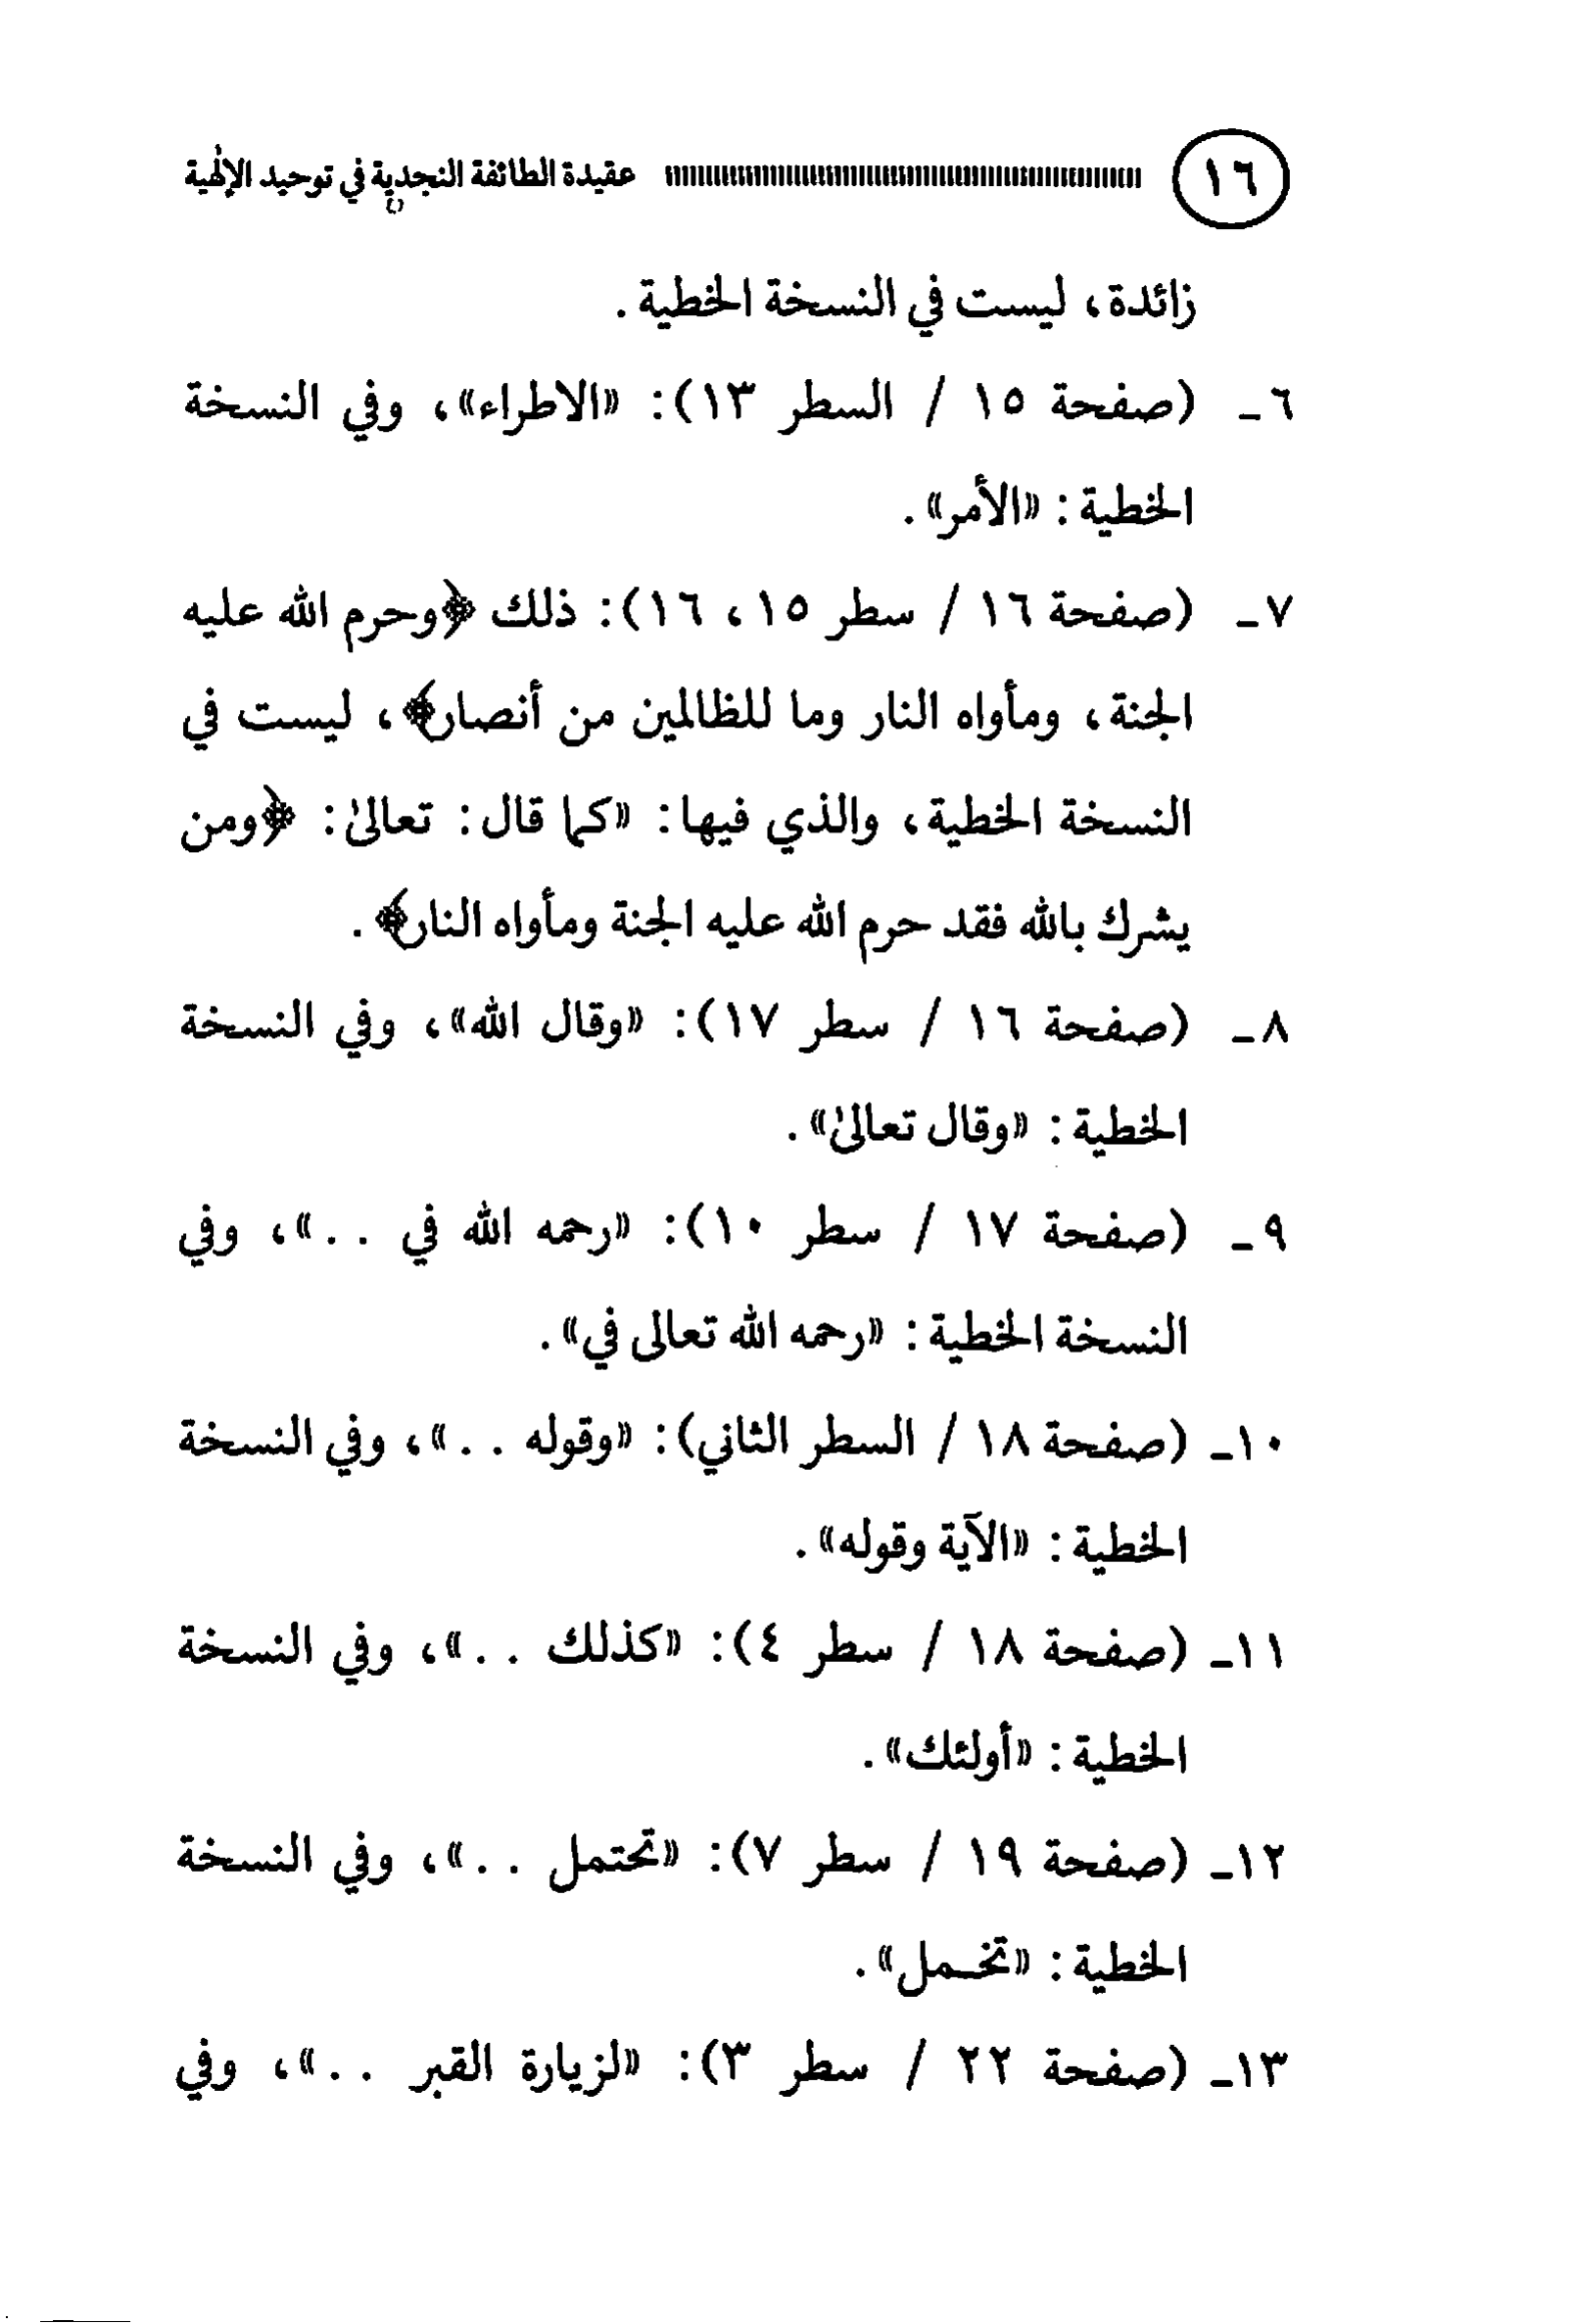 ١٦ عقيدة الطائفة النجدية في توحيد الإلٰهية
زائدة، ليست في النسخة الخطية.
٦ـ (صفحة ١٥ / السطر ١٣): «الاطراء»، وفي النسخة
الخطية: «الأمر».
٧ـ (صفحة ١٦ / سطر ١٥، ١٦): ذلك ﴿وحرم الله عليه
الجنة، ومأواه النار وما للظالمين من أنصار﴾، ليست في
النسخة الخطية، والذي فيها: «كما قال: تعالىٰ: ﴿ومن
يشرك بالله فقد حرم الله عليه الجنة ومأواه النار﴾.
٨ـ (صفحة ١٦ / سطر ١٧): «وقال الله»، وفي النسخة
الخطية: «وقال تعالىٰ».
٩ـ (صفحة ١٧ / سطر ١٠): «رحمه الله في ..»، وفي
النسخة الخطية: «رحمه الله تعالى في».
١٠ـ (صفحة ١٨ / السطر الثاني): «وقوله ..»، وفي النسخة
الخطية: «الآية وقوله».
١١ـ (صفحة ١٨ / سطر ٤): «كذلك ..»، وفي النسخة
الخطية: «أولئك».
١٢ـ (صفحة ١٩ / سطر ٧): «تحتمل ..»، وفي النسخة
الخطية: «تخـمل».
١٣ـ (صفحة ٢٢ / سطر ٣): «لزيارة القبر ..»، وفي